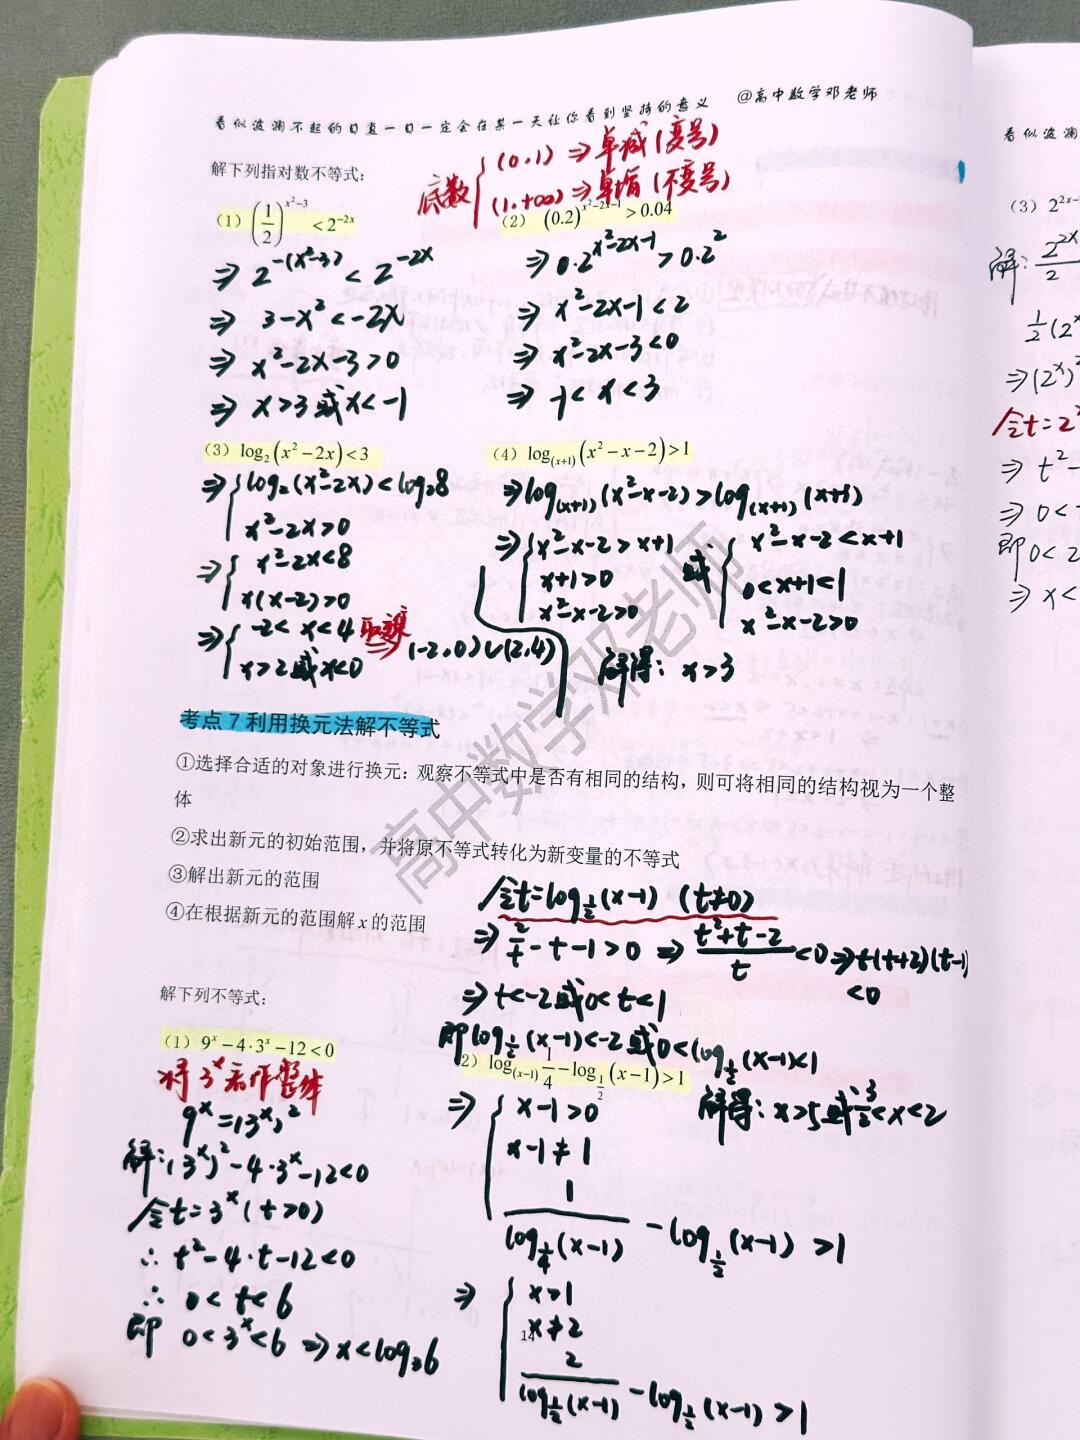 看似波澜不起的日复一日一定会在某一天让你看到坚持的意义 @高中数学邓老师
解下列指对数不等式：
底数 { (0.1) ⇒ 单减(变号)
(1.+∞) ⇒ 单增(不变号)
（1）(1/2)^(x²-3) < 2^(-2x)
⇒ 2^(-(x²-3)) < 2^(-2x)
⇒ 3-x² < -2x
⇒ x²-2x-3>0
⇒ x>3 或 x<-1
（2） (0.2)^(x²-2x-1) > 0.04
⇒ 0.2^(x²-2x-1) > 0.2²
⇒ x²-2x-1<2
⇒ x²-2x-3<0
⇒ -1<x<3
（3）log₂(x²-2x)<3
⇒ { log₂(x²-2x)<log₂8
x²-2x>0
⇒ { x²-2x<8
x(x-2)>0
⇒ { -2<x<4
x>2 或 x<0
⇒ (-2,0)∪(2,4)
（4）log₍ₓ₊₁₎(x²-x-2)>1
⇒ log₍ₓ₊₁₎(x²-x-2)>log₍ₓ₊₁₎(x+1)
⇒ { x²-x-2>x+1 或 { x²-x-2<x+1
x+1>0 0<x+1<1
x²-x-2>0 x²-x-2>0
解得：x>3
考点 7 利用换元法解不等式
①选择合适的对象进行换元：观察不等式中是否有相同的结构，则可将相同的结构视为一个整
体
②求出新元的初始范围，并将原不等式转化为新变量的不等式
③解出新元的范围
④在根据新元的范围解 x 的范围
解下列不等式：
（1）9^x-4·3^x-12<0
将3^x看作整体
9^x=(3^x)²
解：(3^x)²-4·3^x-12<0
令t=3^x (t>0)
∴ t²-4·t-12<0
∴ 0<t<6
即 0<3^x<6 ⇒ x<log₃6
令t=log_(1/2)(x-1) (t≠0)
⇒ 2/t-t-1>0 ⇒ (t²+t-2)/t<0 ⇒ t(t+2)(t-1)
<0
⇒ t<-2 或 0<t<1
即log_(1/2)(x-1)<-2 或 0<log_(1/2)(x-1)<1
2）log₍ₓ₋₁₎ 1/4-log_(1/2)(x-1)>1
解得：x>5 或 3/2<x<2
⇒ { x-1>0
x-1≠1
1/log_(1/4)(x-1) - log_(1/2)(x-1) >1
⇒ { x>1
x≠2
2/log_(1/2)(x-1) - log_(1/2)(x-1) >1
14
高中数学邓老师
看似波澜
（3）2^(2x-
解：2^(2x
2
1/2(2^x
⇒(2^x)²
令t=2^x
⇒ t²-
⇒ 0<
即 0<2
⇒ x<